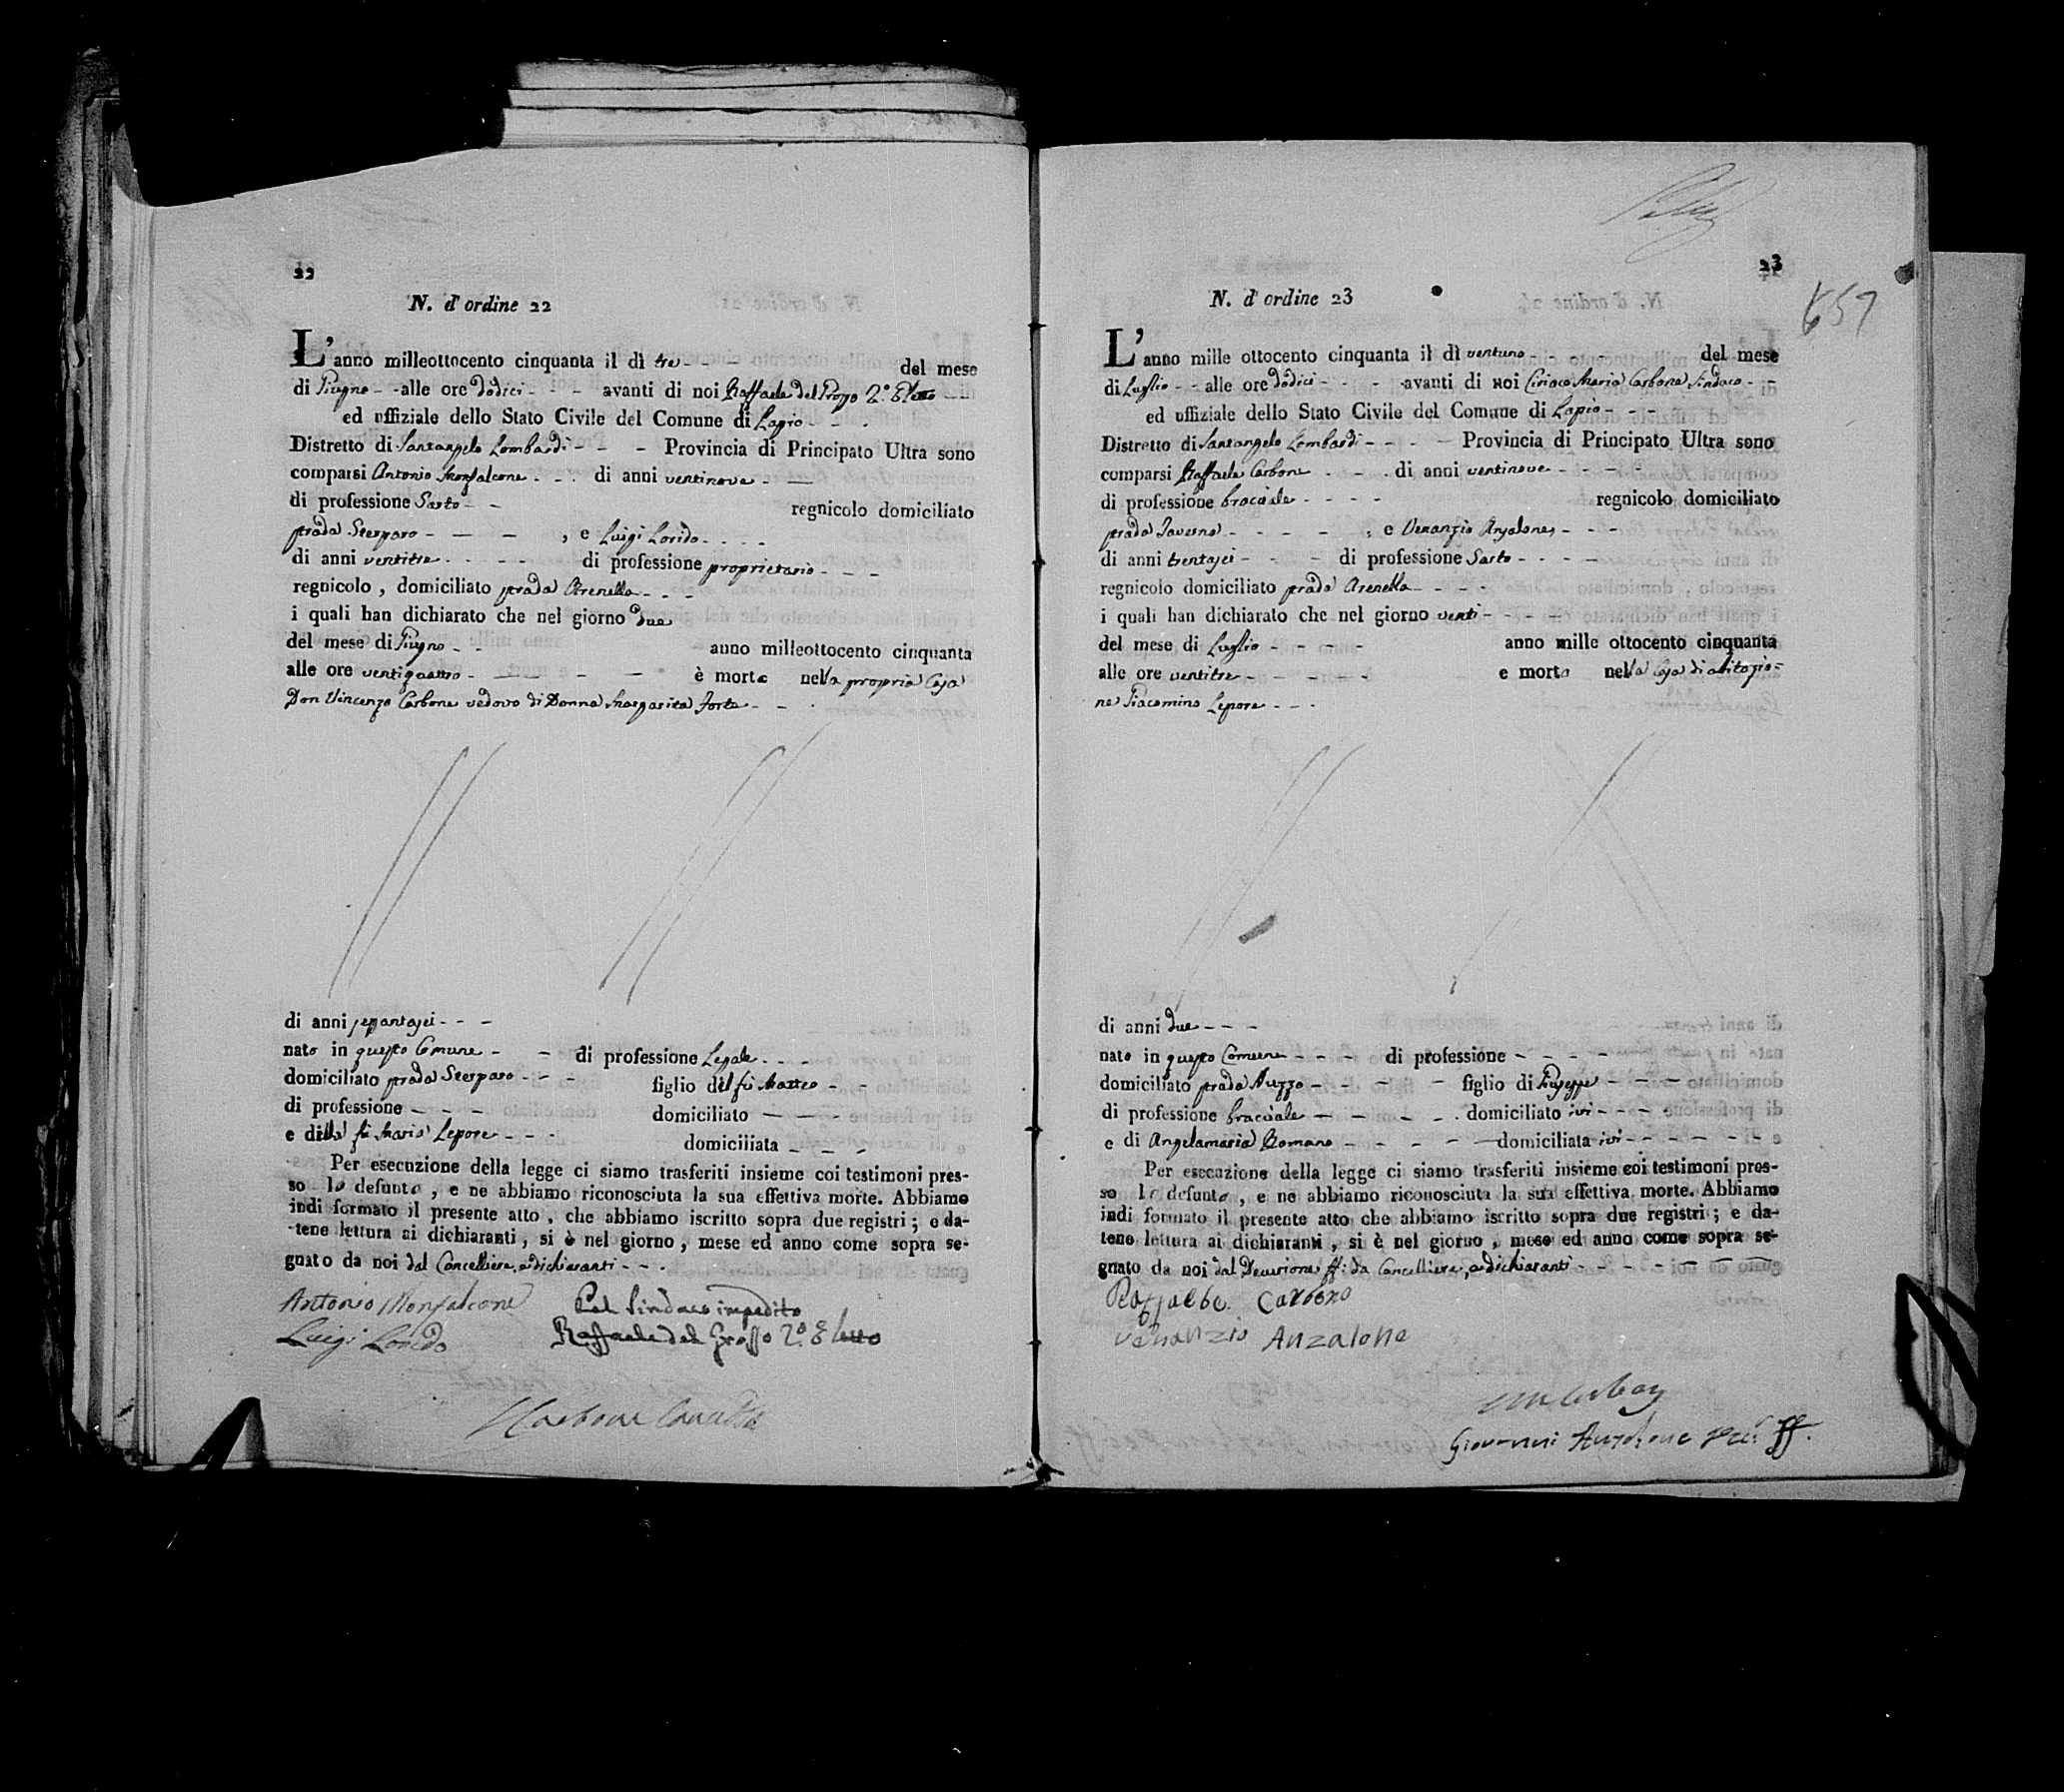 22
N. d'ordine 22
L'anno milleottocento cinquanta il dì tre - - - del mese
di Giugno - - alle ore dodici - - - avanti di noi Raffaele del Grosso 2.° Eletto
ed uffiziale dello Stato Civile del Comune di Lapio - - -
Distretto di Santangelo Lombardi - - - Provincia di Principato Ultra sono
comparsi Antonio Monfalcone - - - di anni ventinove - —
di professione Sarto - - regnicolo domiciliato
strada Sterparo - — - — , e Luigi Lorido - - - -
di anni ventitre - - - - di professione proprietario - - -
regnicolo , domiciliato strada Arenella - - -
i quali han dichiarato che nel giorno due
del mese di Giugno - - anno milleottocento cinquanta
alle ore ventiquattro - — - — è morto nella propria Casa
Don Vincenzo Carbone vedovo di Donna Margarita Forte - - -
di anni settantasei - - -
nato in questo Comune - - di professione Legale - - -
domiciliato strada Sterparo - - - figlio del fu Matteo - -
di professione - - - domiciliato — — -
e della fu Maria Lepore - - - domiciliata - - -
Per esecuzione della legge ci siamo trasferiti insieme coi testimoni pres-
so lo defunto , e ne abbiamo riconosciuta la sua effettiva morte. Abbiamo
indi formato il presente atto , che abbiamo iscritto sopra due registri ; e da-
tene lettura ai dichiaranti , si è nel giorno , mese ed anno come sopra se-
gnato da noi dal Cancelliere, e dichiaranti - - -
Antonio Monfalcone Pel Sindaco impedito
Luigi Lorido Raffaele del Grosso 2.° Eletto
Carbone
23
657
N. d'ordine 23
L'anno mille ottocento cinquanta il dì ventuno - - - del mese
di Luglio - - alle ore dodici - - - avanti di noi Ciriaco Maria Carbone Sindaco - -
ed uffiziale dello Stato Civile del Comune di Lapio - - -
Distretto di Santangelo Lombardi - - - - Provincia di Principato Ultra sono
comparsi Raffaele Carbone - - - di anni ventinove - - - -
di professione bracciale - - - - regnicolo domiciliato
strada Taverna - - - - , e Venanzio Anzalone - - -
di anni trentasei - - - di professione Sarto - - - -
regnicolo domiciliato strada Arenella - - - -
i quali han dichiarato che nel giorno venti - - - -
del mese di Luglio - - - - anno mille ottocento cinquanta
alle ore ventitre - - - - - e morto nella Casa di abitazio-
ne Giacomino Lepore - - -
di anni due - - -
nato in questo Comune - - - di professione - - - -
domiciliato strada - - - - figlio di Giuseppe - - -
di professione bracciale — - - - - domiciliato ivi - - - -
e di Angelamaria Romano - - - - — domiciliata ivi - - - - - -
Per esecuzione della legge ci siamo trasferiti insieme coi testimoni pres-
so lo defunto , e ne abbiamo riconosciuta la sua effettiva morte. Abbiamo
indi formato il presente atto che abbiamo iscritto sopra due registri ; e da-
tene lettura ai dichiaranti , si è nel giorno , mese ed anno come sopra se-
gnato da noi dal Decurione ff: da Cancelliere, e dichiaranti - - - - - -
Raffaele Carbone
Venanzio Anzalone
Giovanni Anzalone ff.